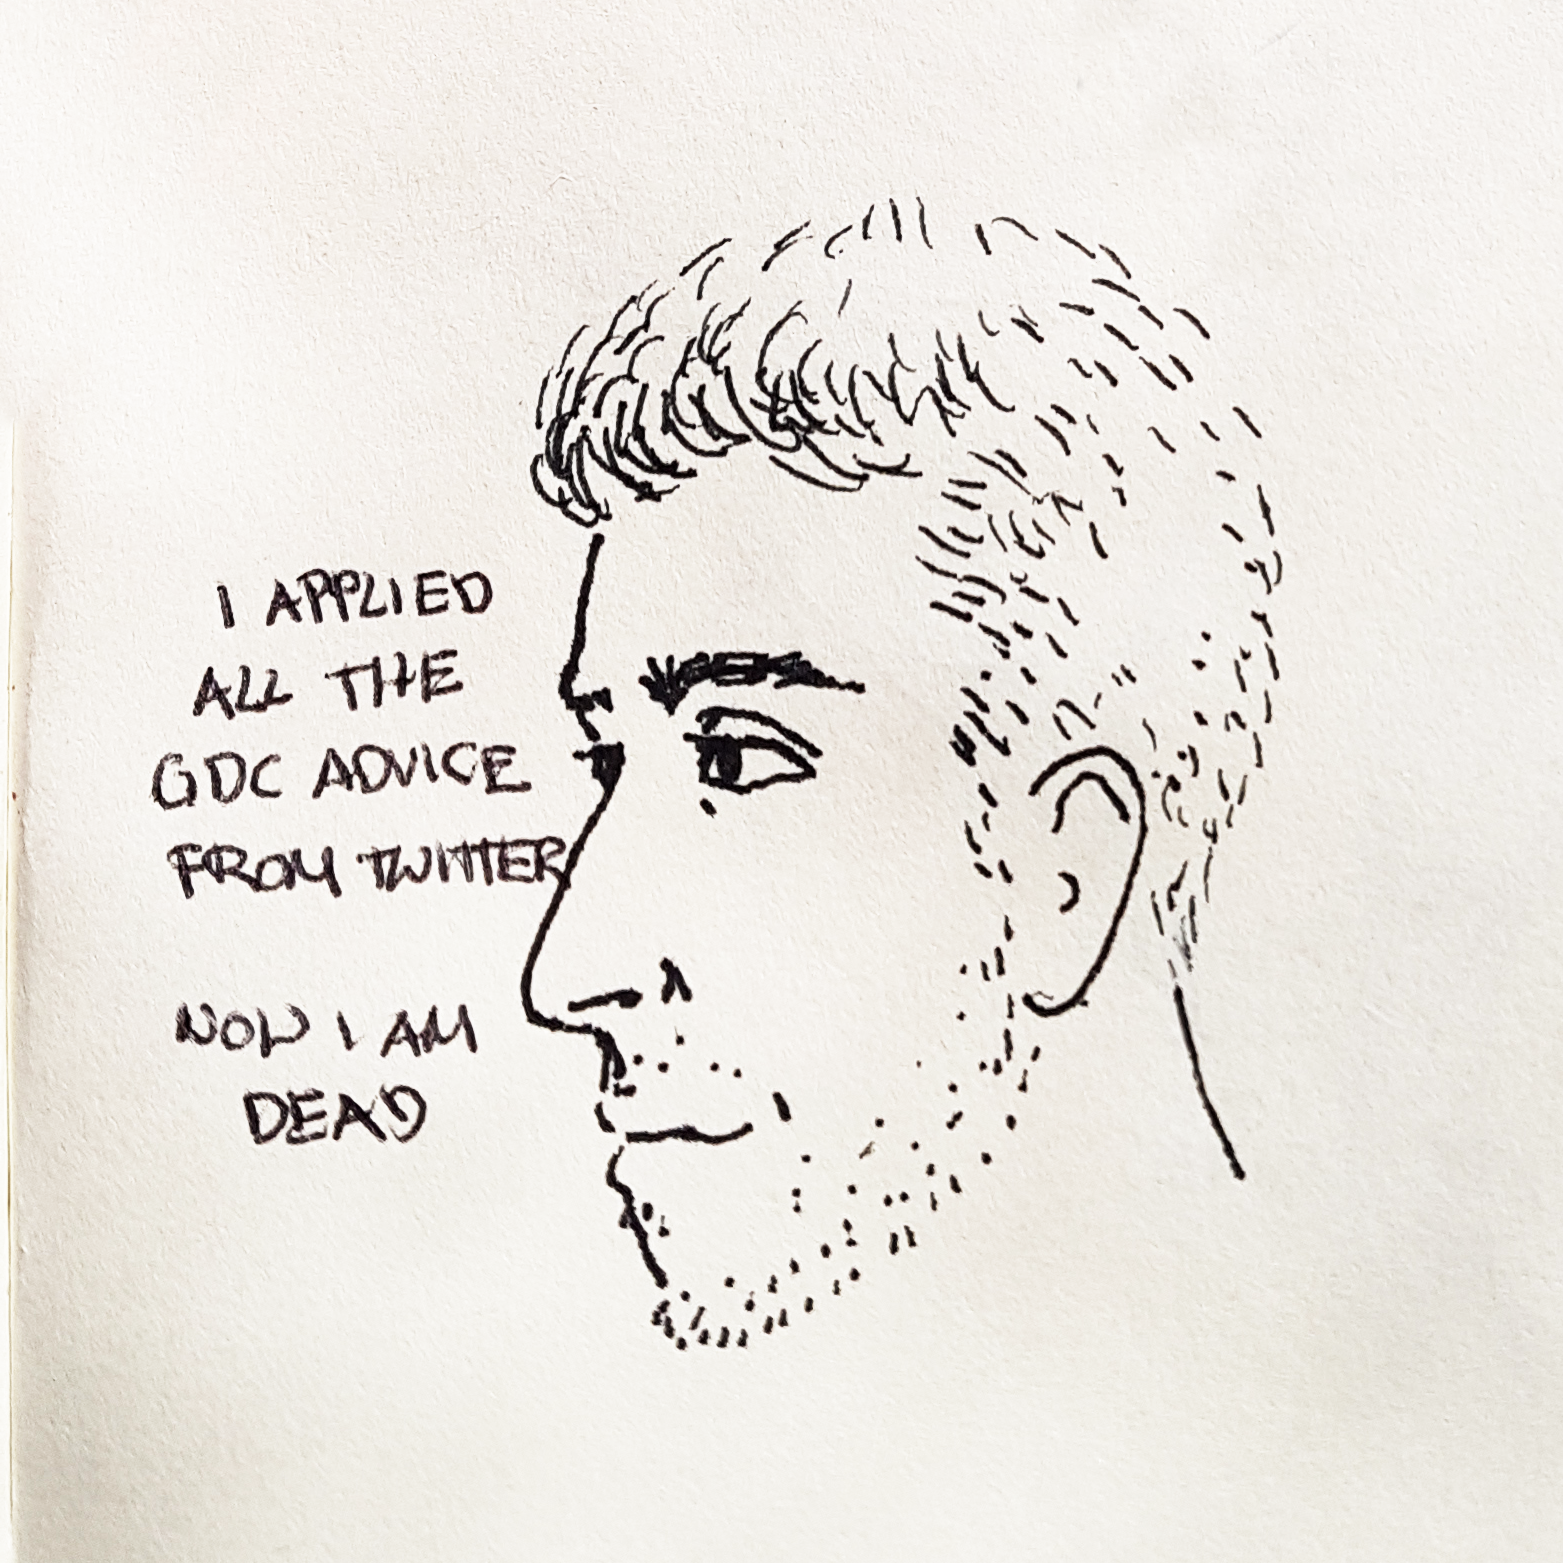 I APPLIED
ALL THE
GDC ADVICE
FROM TWITTER
NOW I AM
DEAD